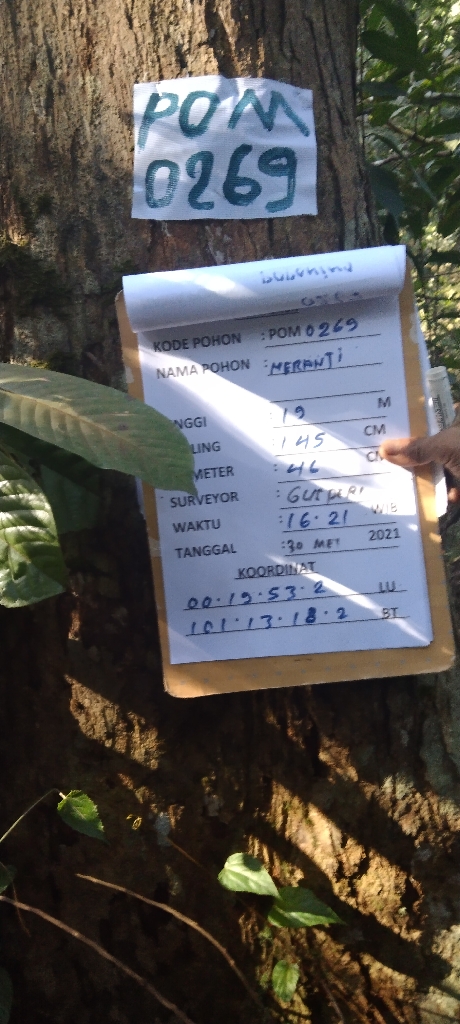 POM
0269
KODE POHON : POM 0269
NAMA POHON : MERANTI
NGGI : 19 M
LING : 145 CM
METER : 46 C
SURVEYOR :
WAKTU : 16.21 WIB
TANGGAL : 30 MEI 2021
KOORDINAT
00.19.53.2 LU
101.13.18.2 BT